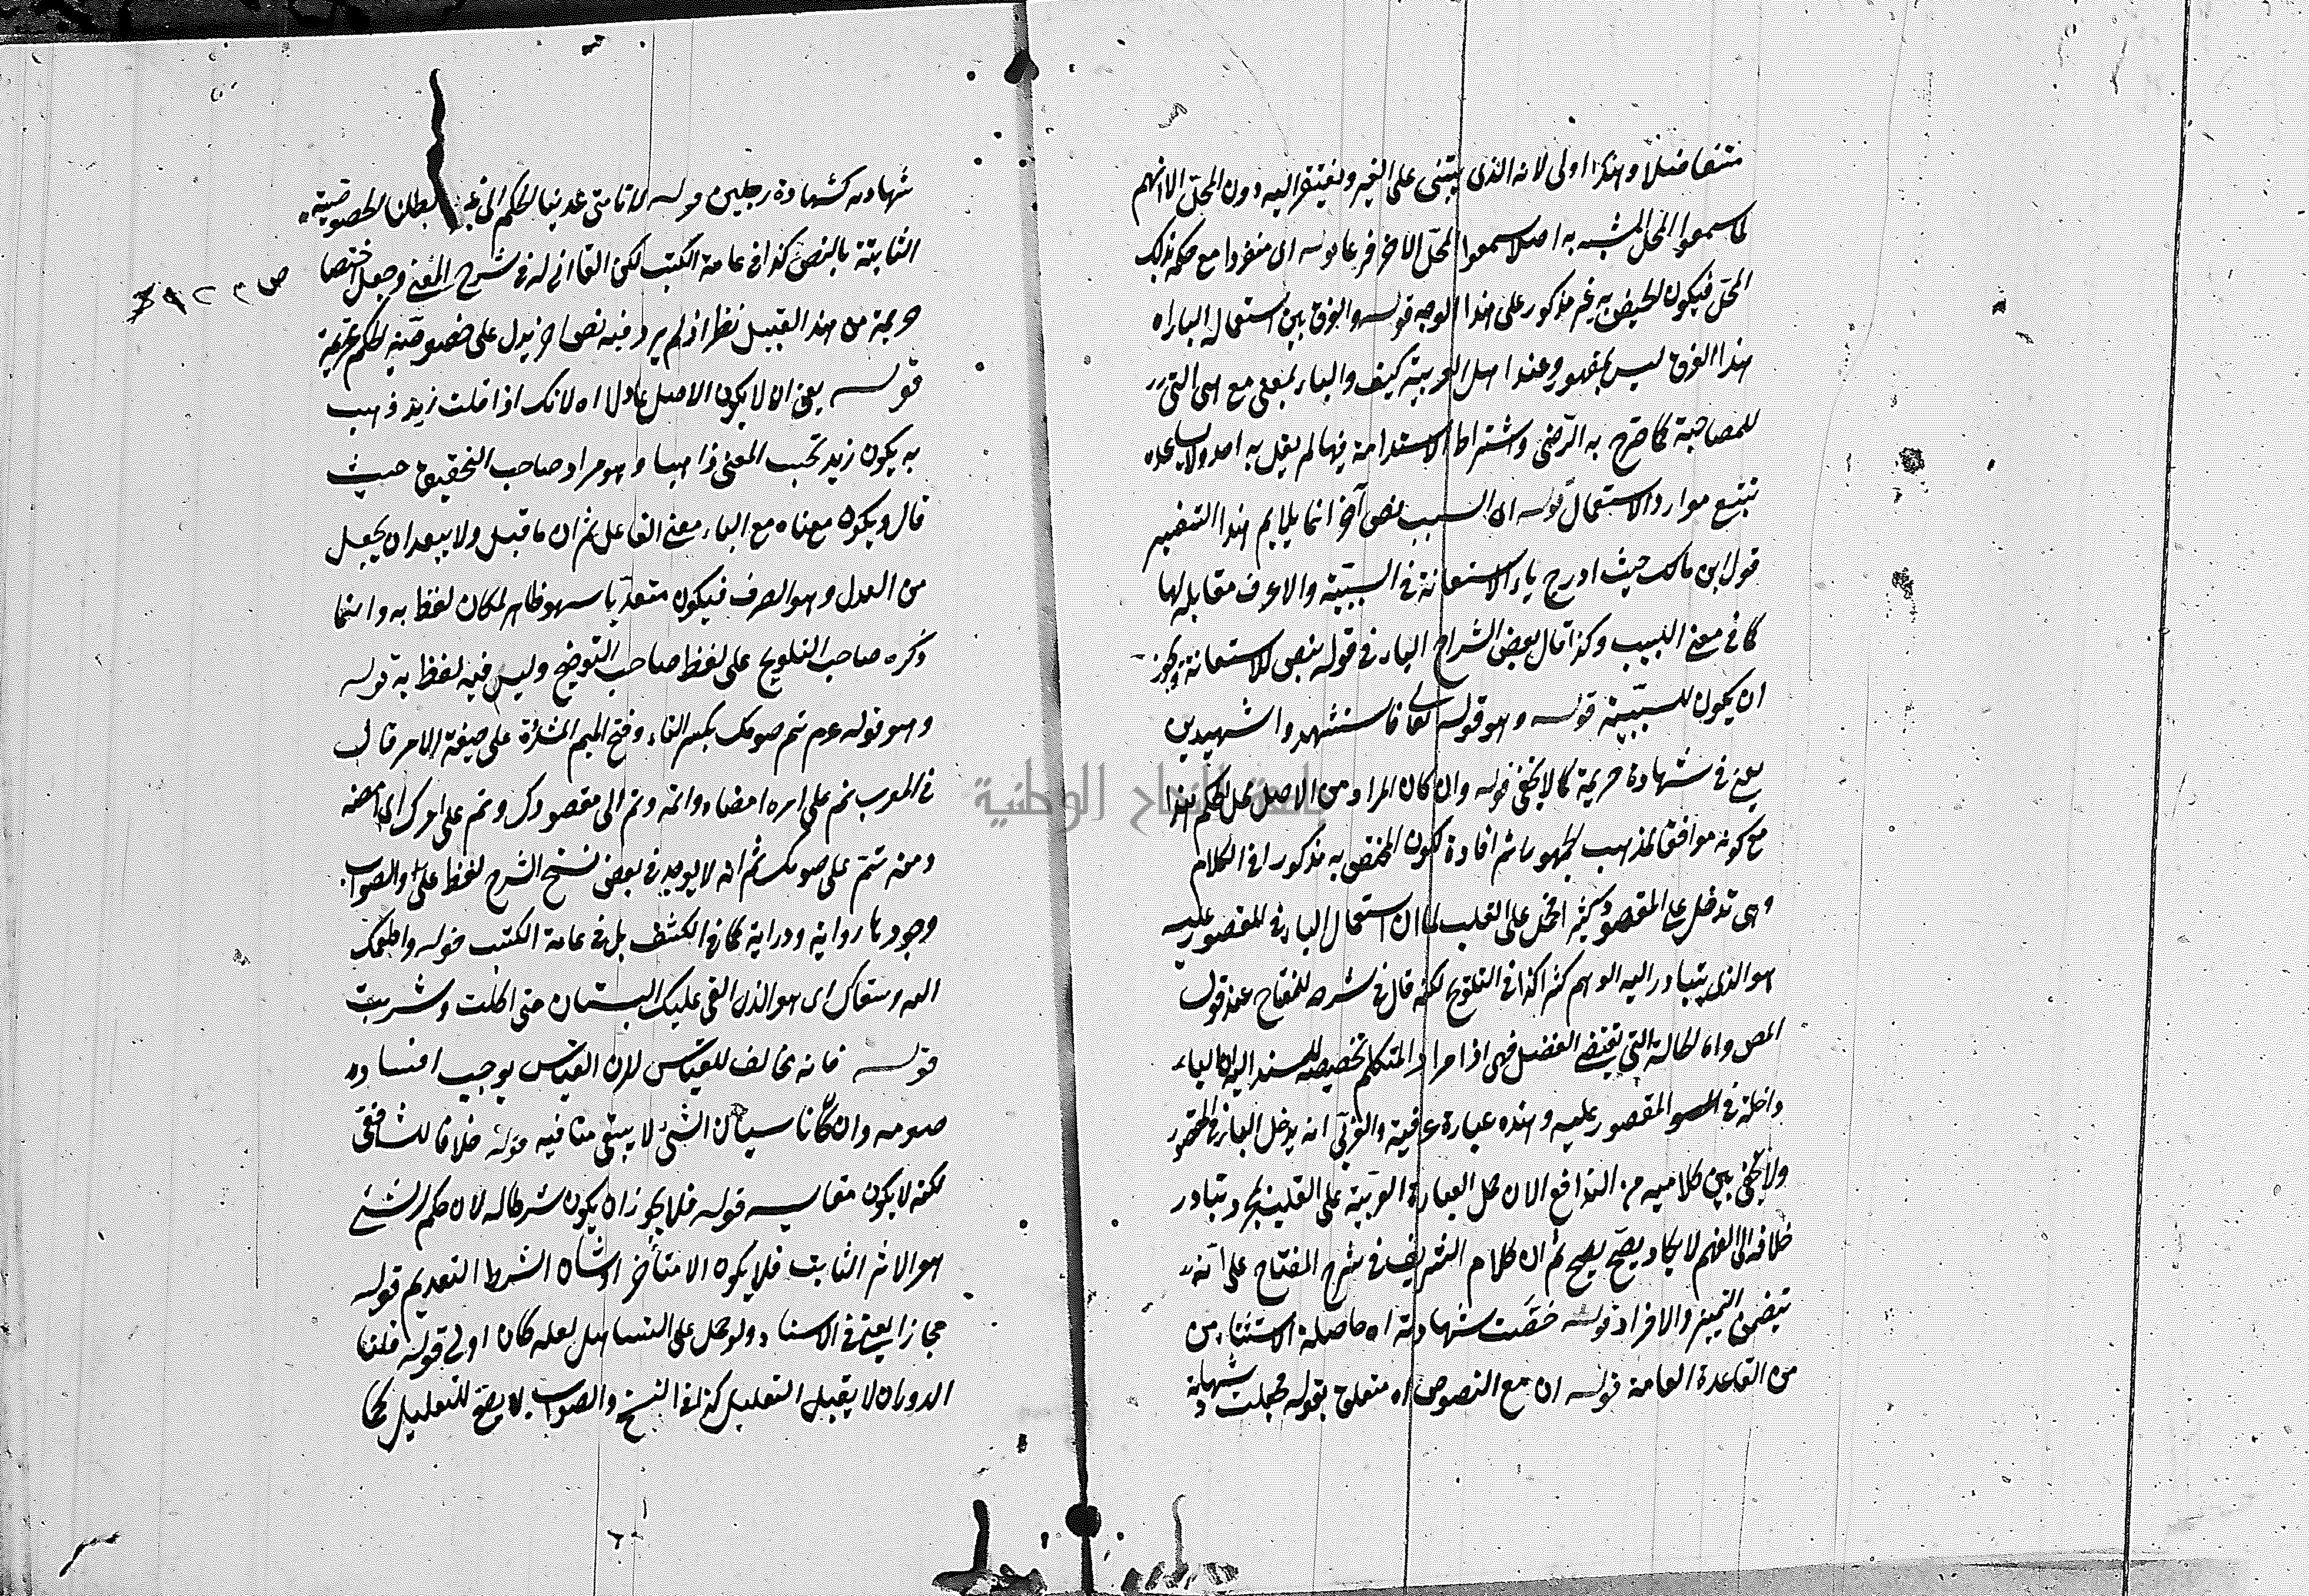 متفاضلا وهذا اولى لانه الذي يبتنى على الغير ويفتقر اليه دون المحل الا انهم
لما سموا المحل المشبه به اصلا سموا المحل الآخر فرعا قوله اى منفردا مع حكمه بذلك
المحل فيكون لحيض به غير مذكور على هذا الوجه قوله والفرق بين استعمال الباء اه
هذا الفرق ليس بمشهور عند اهل العربية كيف والباء بمعنى مع هى التى
للمصاحبة كما صرح به الرضى واشتراط الاستدامة فيها لم يقل به احد ولا يساعده
تتبع موارد الاستعمال قوله ان السبب نص آخر انما يلايم هذا التفسير
قول ابن مالك حيث ادرج باء الاستعانة في السببية والاعرف مقابلته لها
كما في مغنى اللبيب وكذا قال بعض الشراح الباء في قوله بنص للاستعانة ويجوز
ان يكون للسببية قوله وهو قوله تعالى فاستشهدوا شهيدين
يعنى في شهادة خزيمة كما لا يخفى قوله وان كان المراد من الاصل محل الحكم هذا
مع كونه موافقا لمذهب الجمهور اتم افادة لكون المختص به مذكورا في الكلام
وهى تدخل على المقصور كثيرا فحمل على القلب لما ان استعمال الباء في المقصور عليه
هو الذي يتبادر اليه الوهم كثيرا كذا في التلويح لكنه قال في شرحه للمفتاح عند قول
المص واما الحالة التى تقتضى الفصل فهى اذا مراد المتكلم تخصيصه للمسند اليه ان الباء
داخلة في المقصور عليه وهذه عبارة عرفية والعربى انه يدخل الباء في المقصور
ولا يخفى بين كلاميه من التدافع الا ان حمل العبارة العربية على القلب بمجرد تبادر
خلافه الى الفهم لا يكاد يصح ثم ان كلام الشريف في شرح المفتاح على انه
تضمن التميز والافراد قوله خصت شهادته اه حاصله الاستثناء من
من القاعدة العامة قوله ان مع النصوص اه متعلق بقوله فجعلت شهادة
شهادته كشهادة رجلين قوله لانا متى عدينا الحكم الى غيره ابطلنا الخصوصية
الثابتة بالنص كذا في عامة الكتب لكن القاانى له في شرح المغنى وجعل اختصا
خزيمة من هذا القبيل نظر اذ لم يرد فيه نص آخر يدل على خصوصية الحكم بخزيمة
قوله يعنى ان لا يكون الاصل عادلا اه لانك اذا قلت زيد ذهب
به يكون زيد بحسب المعنى ذاهبا وهو مراد صاحب التحقيق حيث
قال ويكون معناه مع الباء معنى الفاعل ثم ان ما قيل ولا يبعد ان يجعل
من العدل وهو الصرف فيكون متعديا سهو ظاهر لمكان لفظ به وانما
ذكره صاحب التلويح على لفظ صاحب التوضيح وليس فيه لفظ به قوله
وهو قوله عم تم صومك بكسر التاء وفتح الميم المشددة على صيغة الامر قال
في المغرب تم على امره امضاه واتمه وتم الى مقصودك وتم على امرك اى امضه
ومنه تتم على صومك ثم انه لا يوجد في بعض نسخ الشرح لفظ على والصواب
وجودها رواية ودراية كما في الكشف بل في عامة الكتب قوله واطعمك
الله وسقاك اى هو الذي القى عليك النسيان حتى اكلت وشربت
قوله فانه مخالف للقياس لان القياس يوجب افساده
صومه وان كان ناسيا لان الشئ لا يبقى منافيه قوله خلافا للشافعى
لكنه لا يكون مقايسة قوله فلا يجوز ان يكون شرطا له لان حكم الشئ
هو الاثر الثابت فلا يكون الا متأخرا وشان الشرط التقديم قوله
مجازا يعنى في الاسناد ولو حمل على التساهل لعله كان اولى قوله قلنا
الدوران لا يقبل التعليل كذا في النسخ والصواب لا يصح للتعليل كما